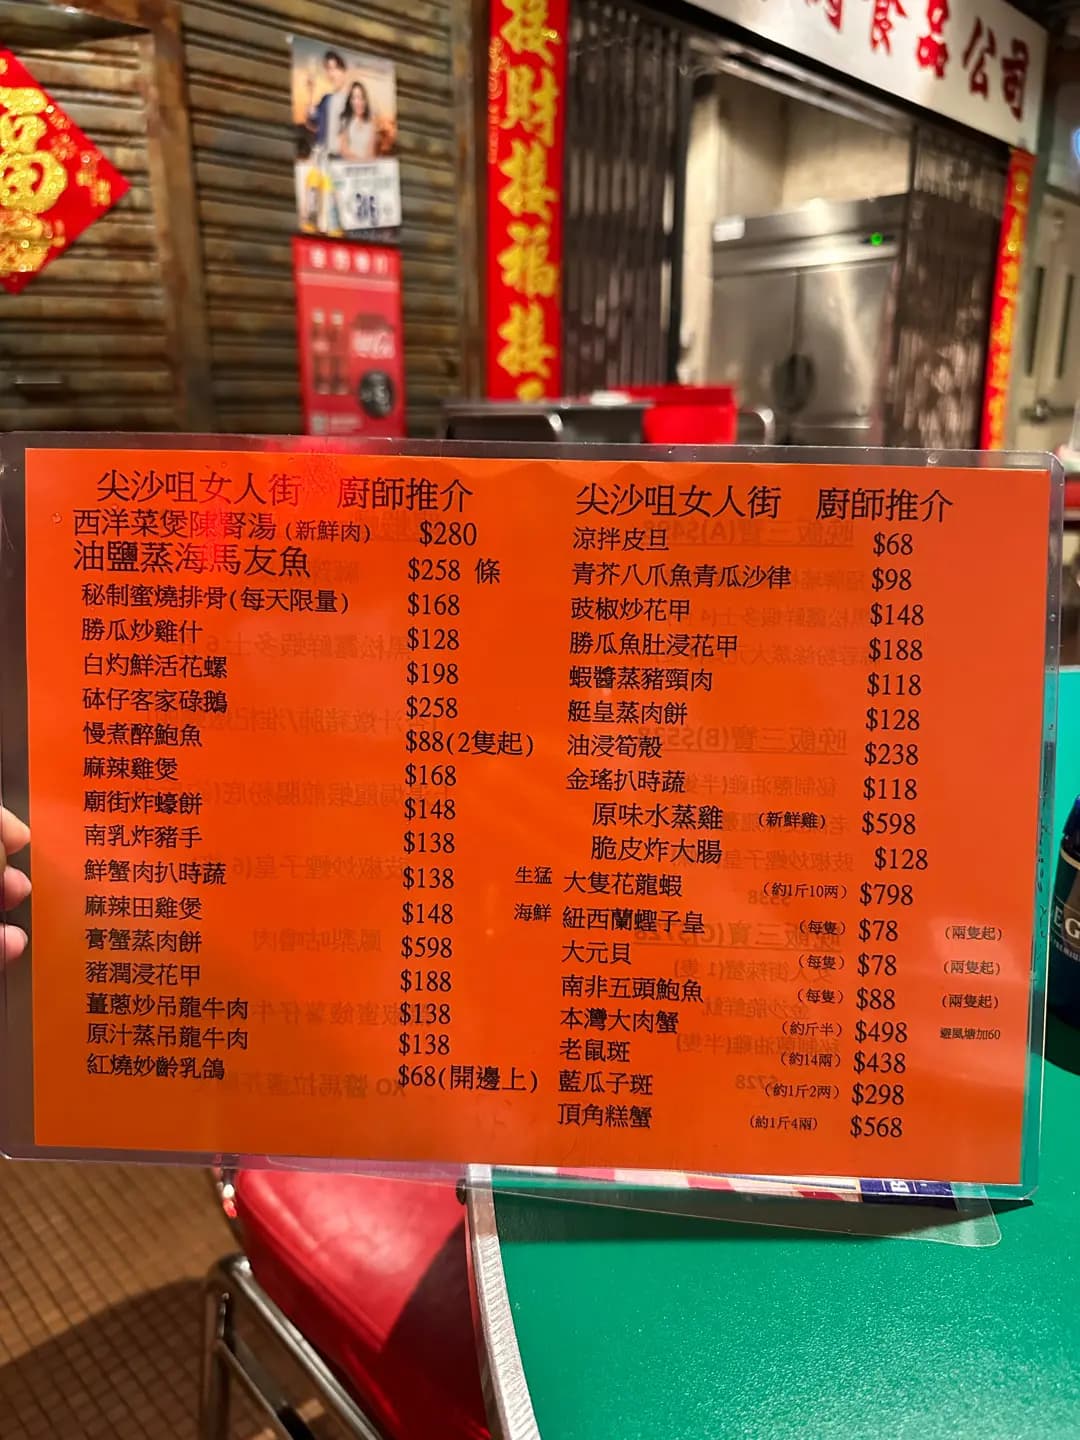 福
接財接福接
食品公司
尖沙咀女人街 廚師推介
西洋菜煲陳腎湯(新鮮肉) $280
油鹽蒸海馬友魚 $258 條
秘制蜜燒排骨(每天限量) $168
勝瓜炒雞什 $128
白灼鮮活花螺 $198
砵仔客家碌鵝 $258
慢煮醉鮑魚 $88(2隻起)
麻辣雞煲 $168
廟街炸蠔餅 $148
南乳炸豬手 $138
鮮蟹肉扒時蔬 $138
麻辣田雞煲 $148
膏蟹蒸肉餅 $598
豬潤浸花甲 $188
薑蔥炒吊龍牛肉 $138
原汁蒸吊龍牛肉 $138
紅燒妙齡乳鴿 $68(開邊上)
尖沙咀女人街 廚師推介
涼拌皮旦 $68
青芥八爪魚青瓜沙律 $98
豉椒炒花甲 $148
勝瓜魚肚浸花甲 $188
蝦醬蒸豬頸肉 $118
艇皇蒸肉餅 $128
油浸筍殼 $238
金瑤扒時蔬 $118
原味水蒸雞 (新鮮雞) $598
脆皮炸大腸 $128
生猛 大隻花龍蝦 (約1斤10两) $798
海鮮 紐西蘭蟶子皇 (每隻) $78 (兩隻起)
大元貝 (每隻) $78 (兩隻起)
南非五頭鮑魚 (每隻) $88 (兩隻起)
本灣大肉蟹 (約斤半) $498 避風塘加60
老鼠斑 (約14兩) $438
藍瓜子斑 (約1斤2两) $298
頂角糕蟹 (約1斤4兩) $568